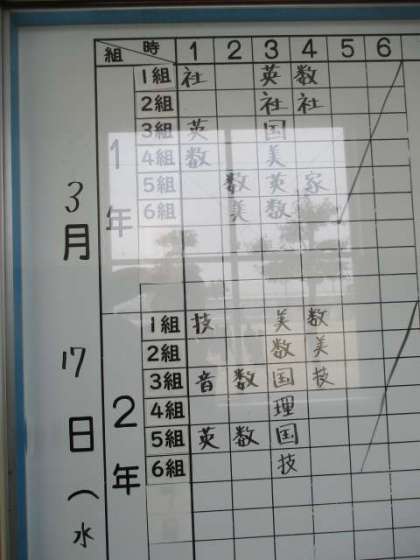 組 時 1 2 3 4 5 6
1年
1組 社 英 数
2組 社 社
3組 英 国
4組 数 美
5組 数 英 家
6組 美 数
2年
1組 技 美 数
2組 数 美
3組 音 数 国 技
4組 理
5組 英 数 国
6組 技
3月17日(水